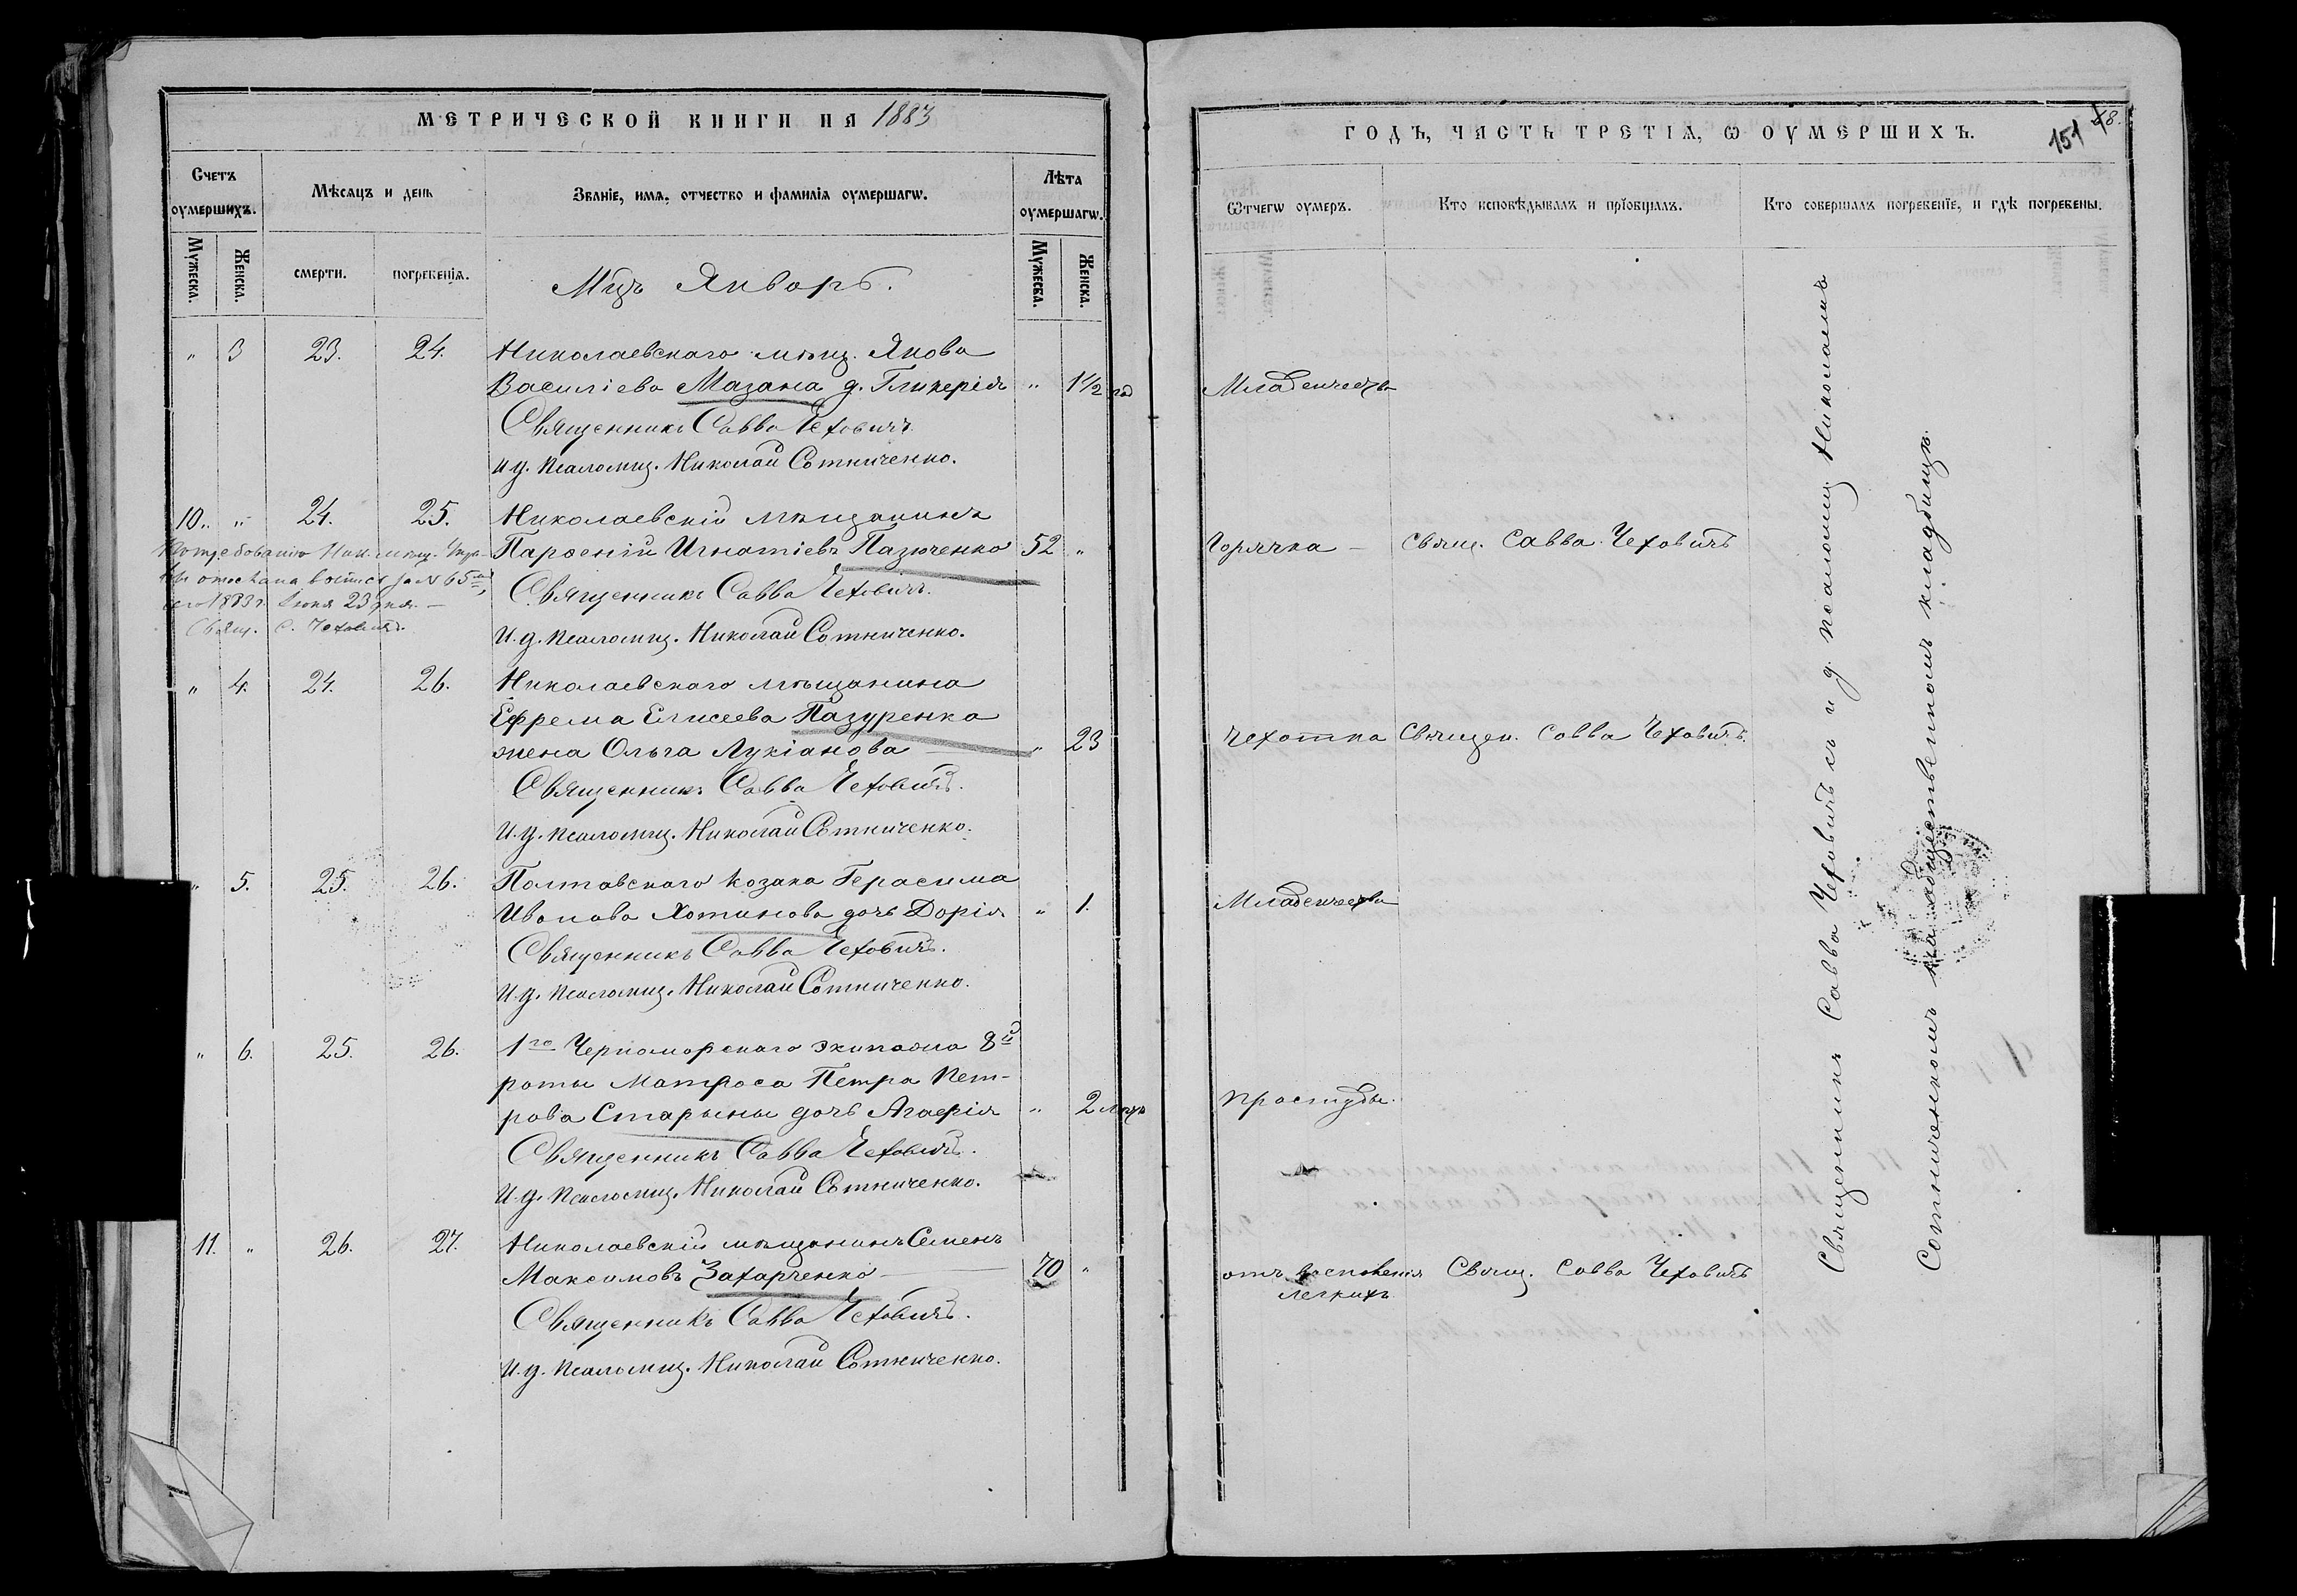 МЕТРИЧЕСКОЙ КНИГИ НА 1883
Счетъ оумершихъ.
Мѣсяцъ и день
Званіе, имя, отчество и фамилія оумершагѡ.
Лѣта оумершагѡ.
Мужеска.
Женска.
смерти.
погребенія.
Мужеска.
Женска.
Мцъ Январь.
" 3 23. 24. Николаевскаго мѣщ. Якова
Василіева Мазана д. Гликерія " 1 1/2 го
Священникъ Савва Чеховичъ.
И. д. Псаломщ. Николай Сотниченко.
10. " 24. 25. Николаевскій мѣщанинъ
Парѳеній Игнатіевъ Пазюченко 52 "
Священникъ Савва Чеховичъ.
И. д. Псаломщ. Николай Сотниченко.
По требованію Ник. мѣщ. Упра-
вы отослана выпись за № 65м
сего 1883 г. Іюня 23 дня. —
Свящ. С. Чеховичъ.
" 4. 24. 26. Николаевскаго мѣщанина
Ефрема Елисеева Пазуренка
жена Ольга Лукіанова " 23
Священникъ Савва Чеховичъ.
И. д. Псаломщ. Николай Сотниченко.
" 5. 25. 26. Полтавскаго козака Герасима
Иванова Хотинова дочь Дарія " 1.
Священникъ Савва Чеховичъ.
И. д. Псаломщ. Николай Сотниченко.
" 6. 25. 26. 1го Черноморскаго экипажа 8й
роты Матроса Петра Пет-
рова Старыны дочь Агафія " 2 мцъ
Священникъ Савва Чеховичъ.
И. д. Псаломщ. Николай Сотниченко.
11. " 26. 27. Николаевскій мѣщанинъ Семенъ
Максимовъ Захарченко 70 "
Священникъ Савва Чеховичъ.
И. д. Псаломщ. Николай Сотниченко.
ГОДЪ, ЧАСТЬ ТРЕТІЯ, Ѡ ОУМЕРШИХЪ.
151
Ѿчегѡ оумеръ.
Кто исповѣдывалъ и пріобщалъ.
Кто совершалъ погребеніе, и гдѣ погребены.
Младенчества
Горячка — Свящ. Савва Чеховичъ
Чехотка Священ. Савва Чеховичъ.
Младенчества
Простуды.
отъ воспаленія Свящ. Савва Чеховичъ
легкихъ
Священникъ Савва Чеховичъ съ и. д. псаломщ. Николаемъ
Сотниченкомъ на общественномъ кладбищѣ.